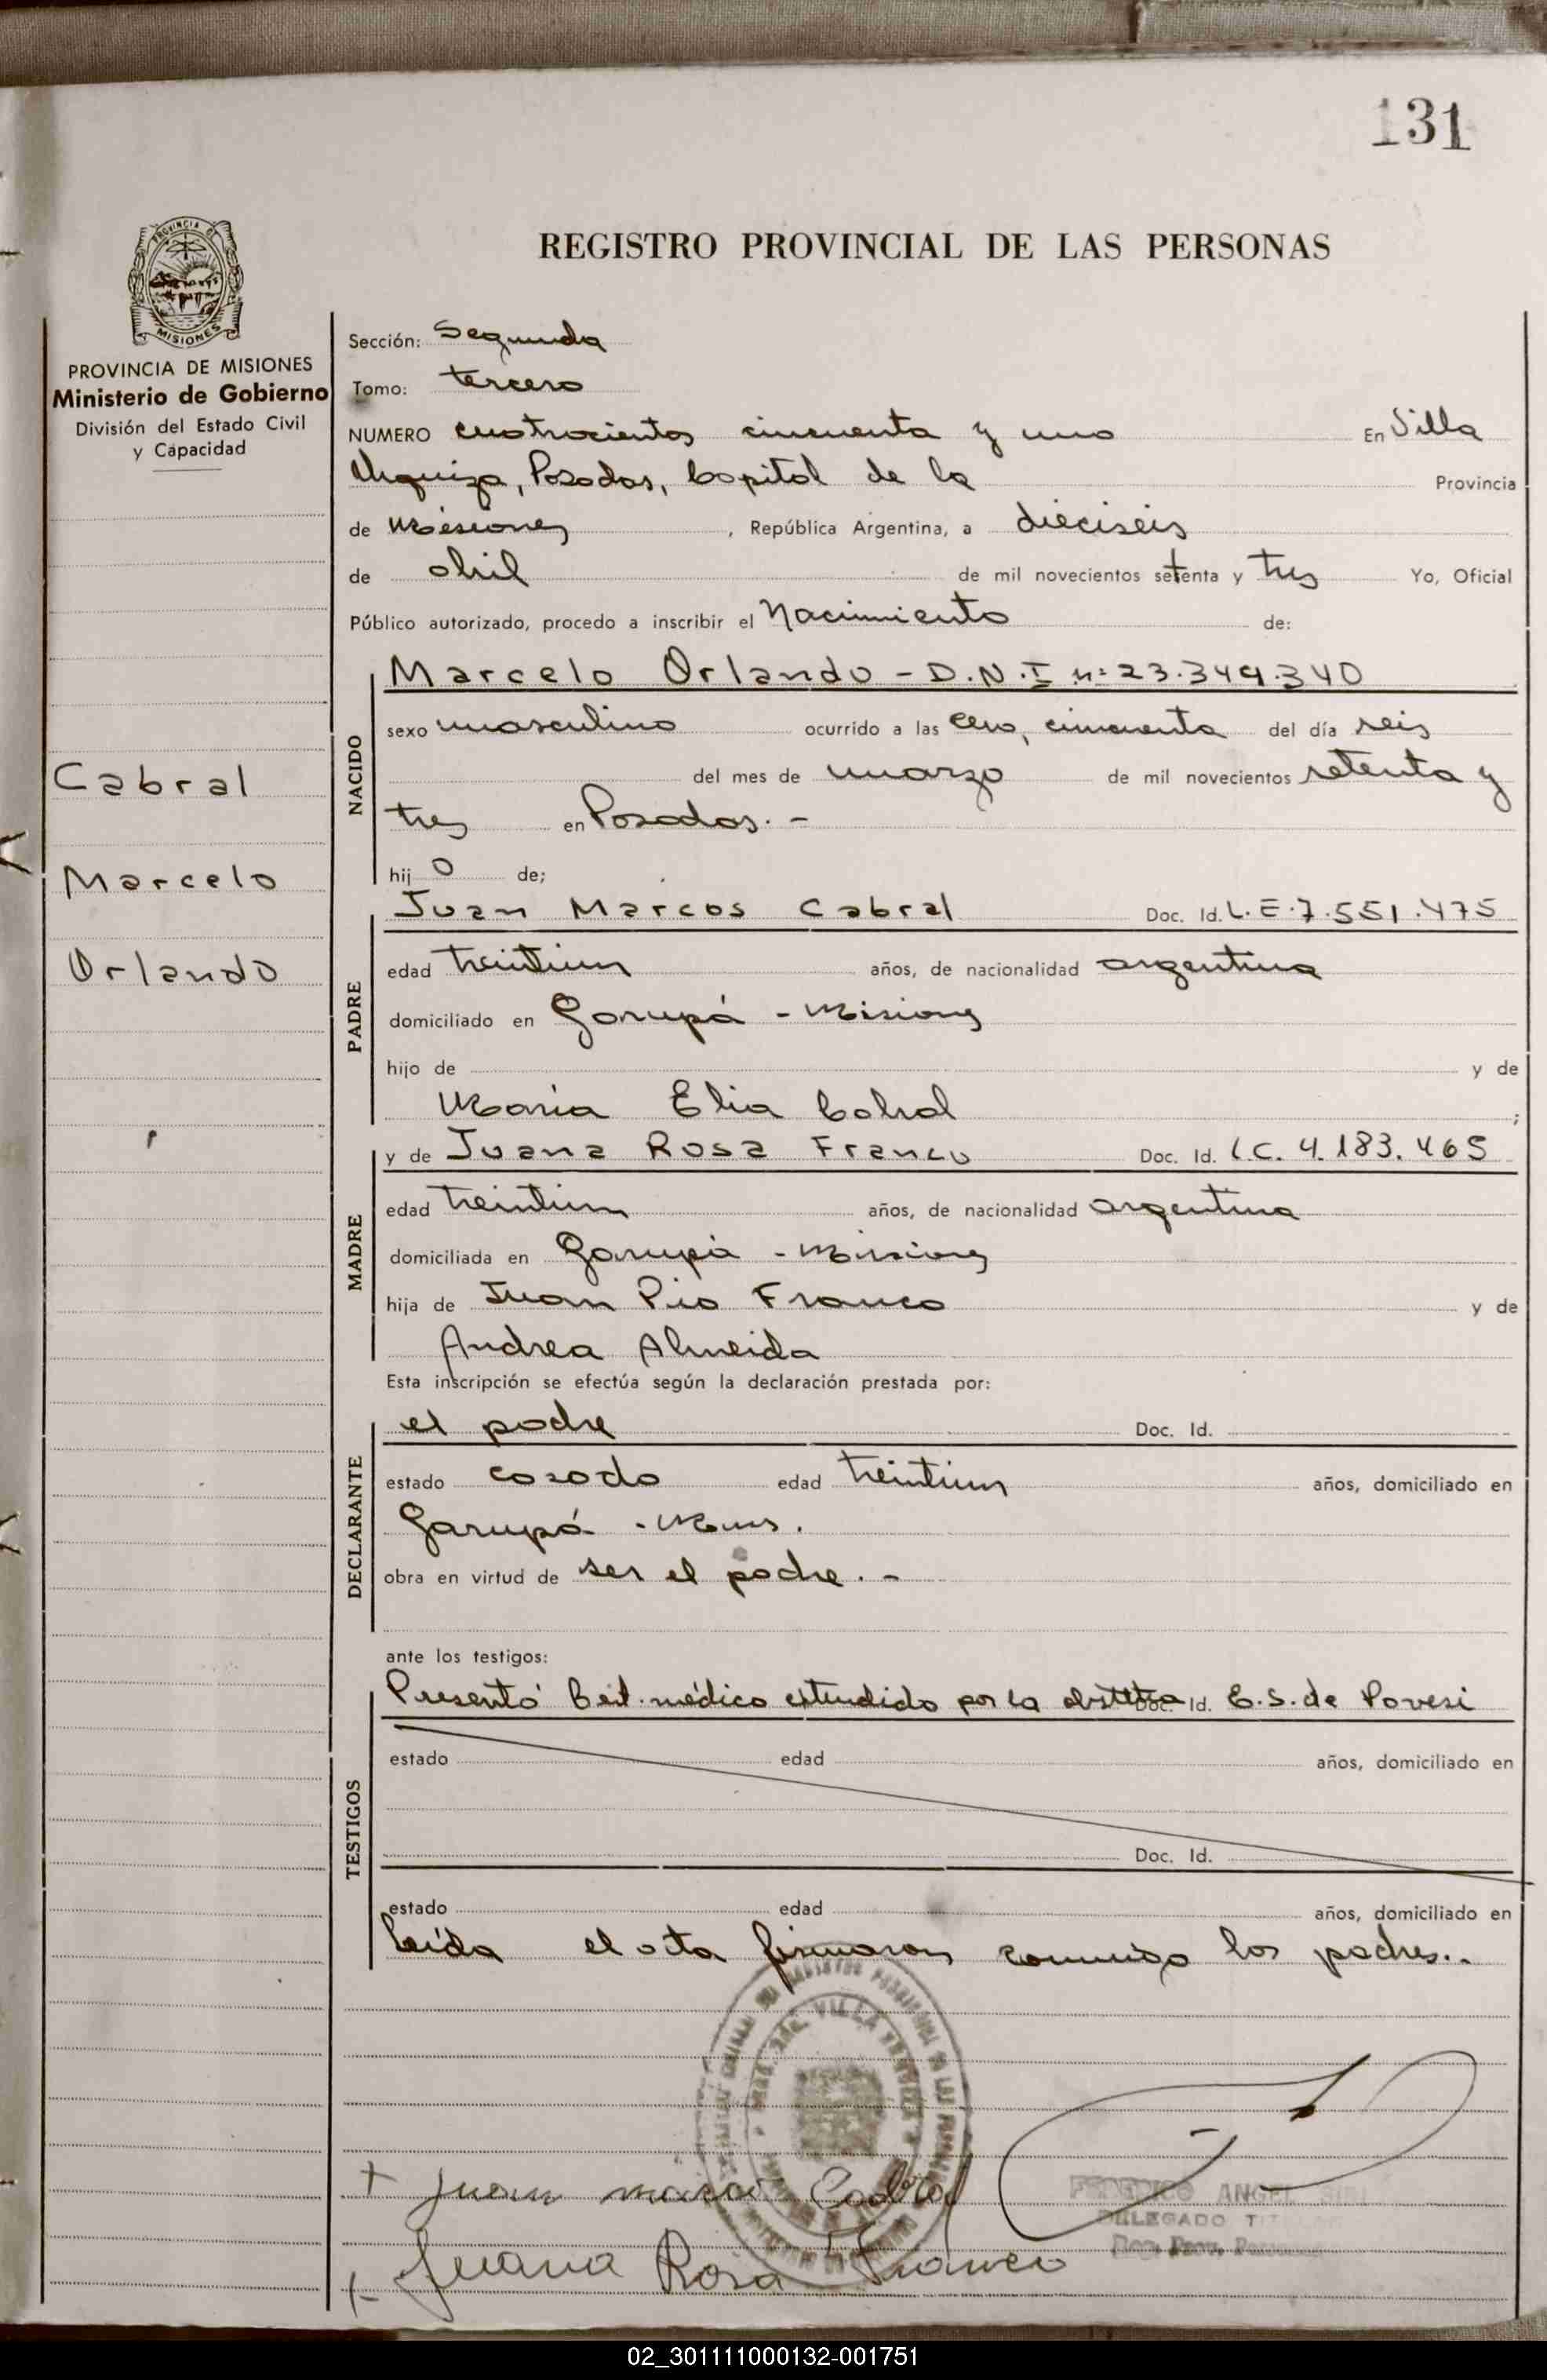 131
PROVINCIA DE
MISIONES
REGISTRO PROVINCIAL DE LAS PERSONAS
PROVINCIA DE MISIONES
Ministerio de Gobierno
División del Estado Civil
y Capacidad
Cabral
Marcelo
Orlando
Sección: Segunda
Tomo: tercero
NUMERO cuatrocientos cincuenta y uno En Villa
Urquiza, Posadas, Capital de la Provincia
de Misiones, República Argentina, a dieciseis
de abril de mil novecientos setenta y tres Yo, Oficial
Público autorizado, procedo a inscribir el Nacimiento de:
NACIDO
Marcelo Orlando - D.N.I nº 23.349.340
sexo masculino ocurrido a las cero, cincuenta del día seis
del mes de marzo de mil novecientos setenta y
tres en Posadas. -
hij o de;
PADRE
Juan Marcos Cabral Doc. Id. L.E.7.551.475
edad treintiun años, de nacionalidad argentina
domiciliado en Garupá - Misiones
hijo de y de
María Elia Cabral ;
MADRE
y de Juana Rosa Franco Doc. Id. L.C. 4.183.465
edad treintiun años, de nacionalidad argentina
domiciliada en Garupá - Misiones
hija de Juan Pio Franco y de
Andrea Almeida
Esta inscripción se efectúa según la declaración prestada por:
DECLARANTE
el padre Doc. Id.
estado casado edad treintiun años, domiciliado en
Garupá -
obra en virtud de ser el padre. -
ante los testigos:
TESTIGOS
Presentó Cert. médico extendido por la Doc. Id. E.S. de Povesi
estado edad años, domiciliado en
Doc. Id.
estado edad años, domiciliado en
Leída el acta firmaron conmigo los padres.-
VILLA
Juan Marcos Cabral
FEDERICO ANGEL
DELEGADO
Juana Rosa Franco
02_301111000132-001751